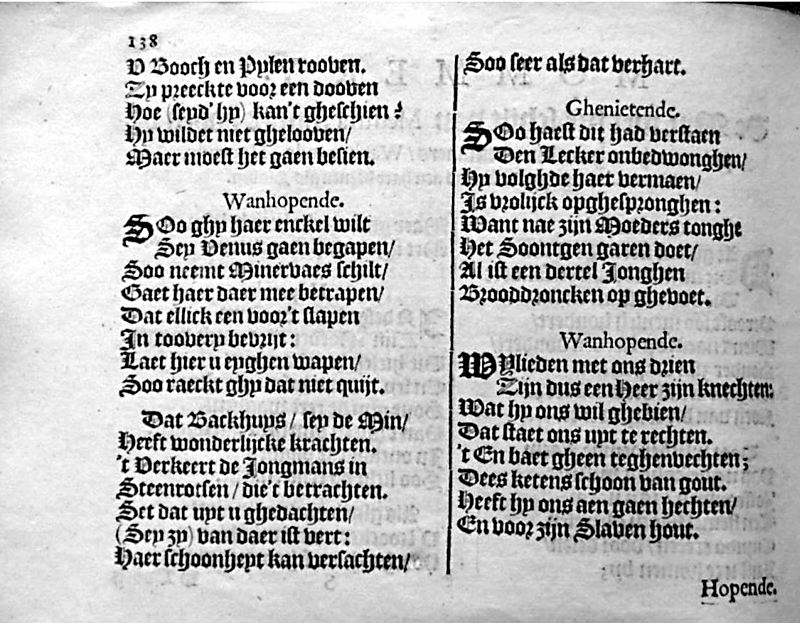 138
V Booch en Pylen rooven.
Zy preeckte voor een dooven
Hoe (seyd' hy) kan't gheschien?
Hy wildet niet ghelooven/
Maer moest het gaen besien.
Wanhopende.
SOo ghy haer enckel wilt
Sey Venus gaen begapen/
Soo neemt Minervaes schilt/
Gaet haer daer mee betrapen/
Dat ellick een voor't slapen
In toovery bevrijt:
Laet hier u eyghen wapen/
Soo raeckt ghy dat niet quijt.
Dat Backhuys/ sey de Min/
Heeft wonderlijcke krachten.
't Verkeert de Jongmans in
Steenrotsen/ die't betrachten.
Set dat uyt u ghedachten/
(Sey zy) van daer ist vert:
Haer schoonheyt kan versachten/
Soo seer als dat verhart.
Ghenietende.
SOo haest dit had verstaen
Den Lecker onbedwonghen/
Hy volghde haer vermaen/
Is vrolijck opghespronghen:
Want nae zijn Moeders tonghe
Het Soontgen garen doet/
Al ist een dertel Jonghen
Brooddroncken op ghevoet.
Wanhopende.
WYlieden met ons drien
Zijn dus een Heer zijn knechten:
Wat hy ons wil ghebien/
Dat staet ons uyt te rechten.
't En baet gheen teghenvechten;
Dees ketens schoon van gout.
Heeft hy ons aen gaen hechten/
En voor zijn Slaven hout.
Hopende.